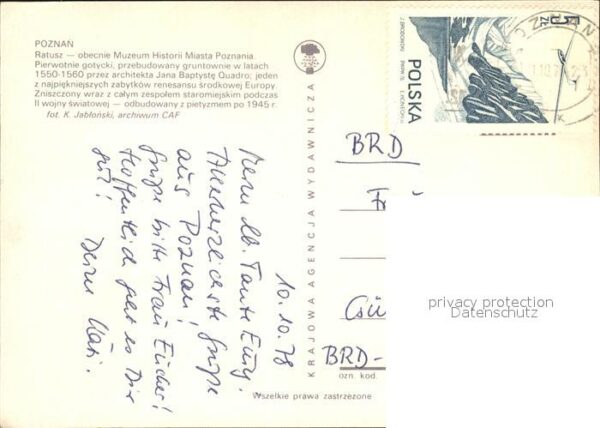 POZNAŃ
Ratusz — obecnie Muzeum Historii Miasta Poznania.
Pierwotnie gotycki, przebudowany gruntownie w latach
1550-1560 przez architekta Jana Baptystę Quadro; jeden
z najpiękniejszych zabytków renesansu środkowej Europy.
Zniszczony wraz z całym zespołem staromiejskim podczas
II wojny światowej — odbudowany z pietyzmem po 1945 r.
fot. K. Jabłoński, archiwum CAF
10.10.78
Meine lb. Tante Emy.
Allerherzlichste Grüße
aus Poznan!
Grüße bitte Frau Eucher!
Hoffentlich geht es Dir
gut! Deine Kati.
KRAJOWA AGENCJA WYDAWNICZA
POLSKA
50 ZŁ
POZNAŃ
BRD
Fr
BRD-
ozn. kod.
Wszelkie prawa zastrzeżone
privacy protection
Datenschutz